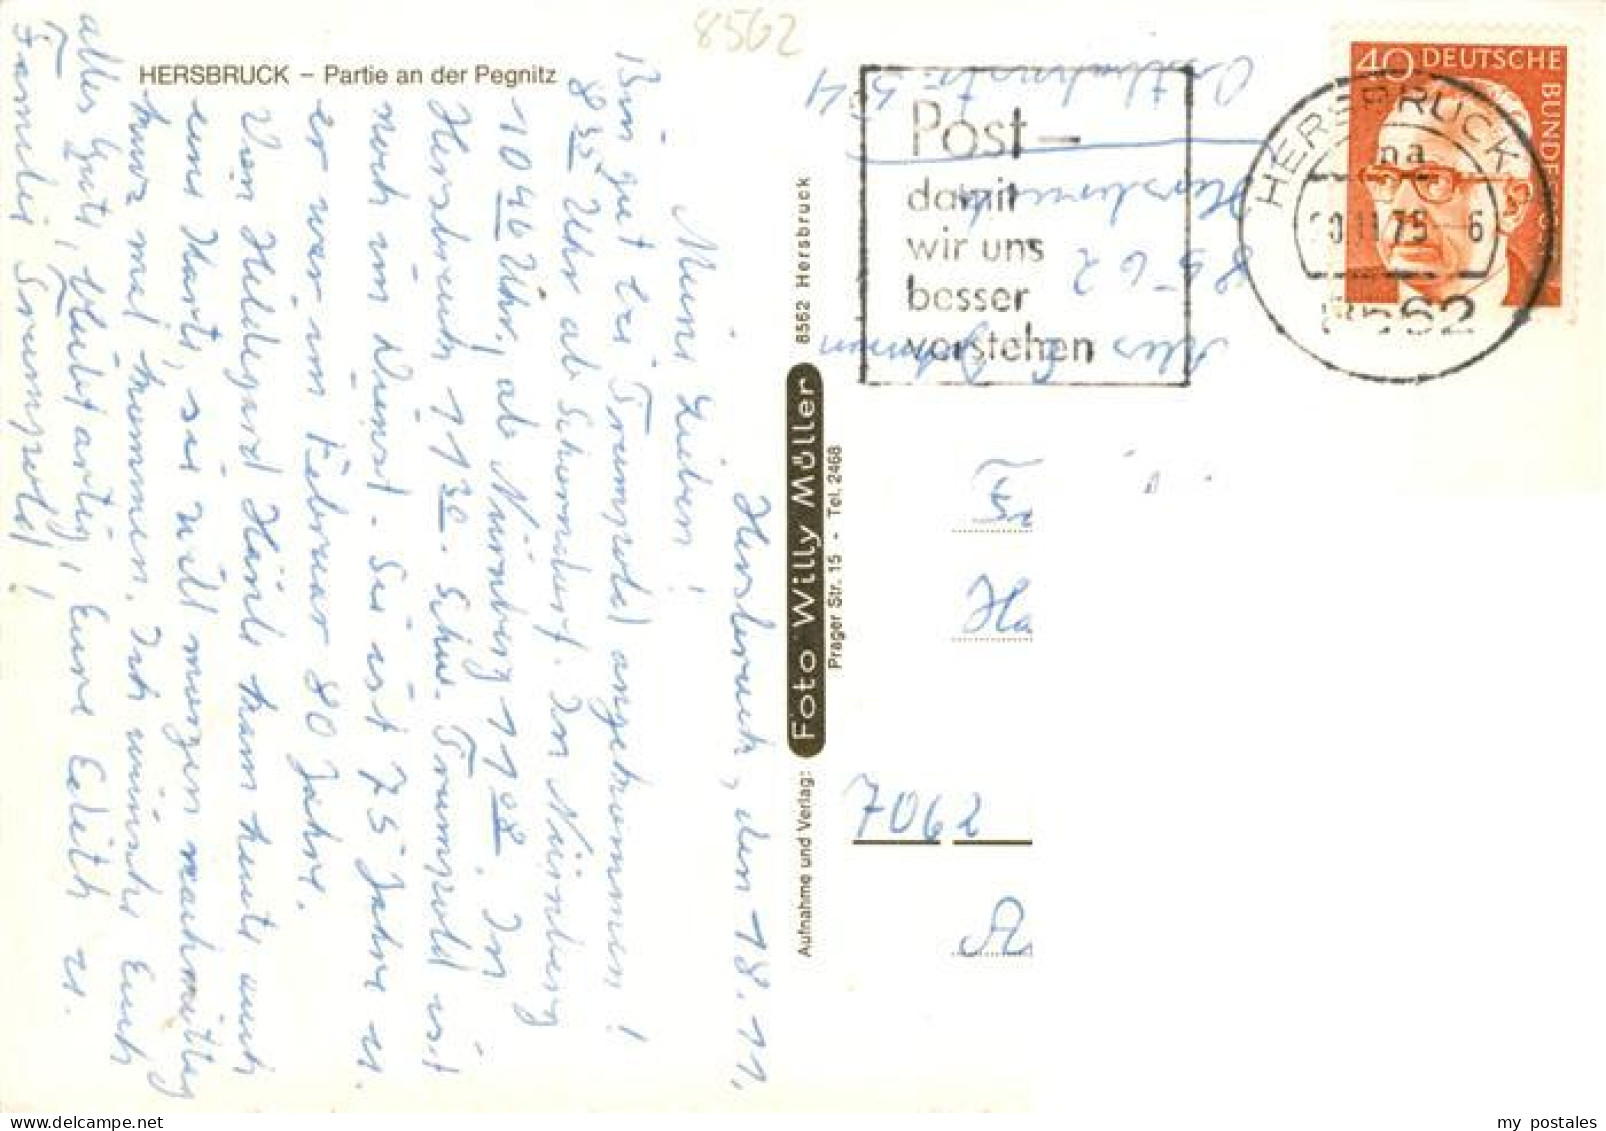 8562
HERSBRUCK – Partie an der Pegnitz
Hersbruck, den 18.11.
Meine Lieben!
Bin gut bei Trumpold angekommen!
8 35 Uhr ab Schorndorf. In Nürnberg
10 46 Uhr, ab Nürnberg 11 08. In
Hersbruck 11 30. Schw. Trumpold ist
noch im Dienst. Sie ist 75 Jahre u.
er war im Februar 80 Jahre.
Von Hildegard Hänle kam heute auch
eine Karte, sie will morgen nachmittag
kurz mal kommen. Ich wünsche Euch
alles Gute, bleibt artig, Eure Edith u.
Familie Trumpold!
Aufnahme und Verlag: Foto Willy Müller 8562 Hersbruck
Prager Str. 15 - Tel. 2468
Ostbahnstr. 54
Hersbruck
8562
Post–
damit
wir uns
besser
verstehen
HERSBRUCK
na
75 6
8562
40 DEUTSCHE
BUNDES
Ha
7062